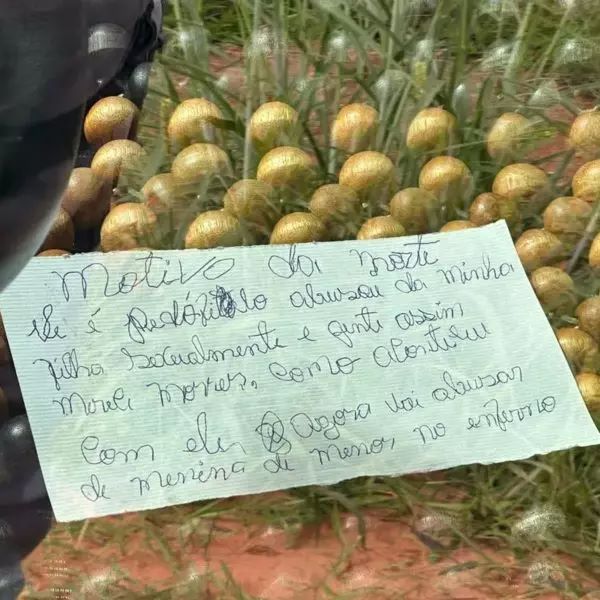 Motivo da morte
ele é pedófilo abusou da minha
filha sexualmente e gente assim
merece morrer, como aconteceu
com ele, agora vai abusar
de menina de menor no enferno